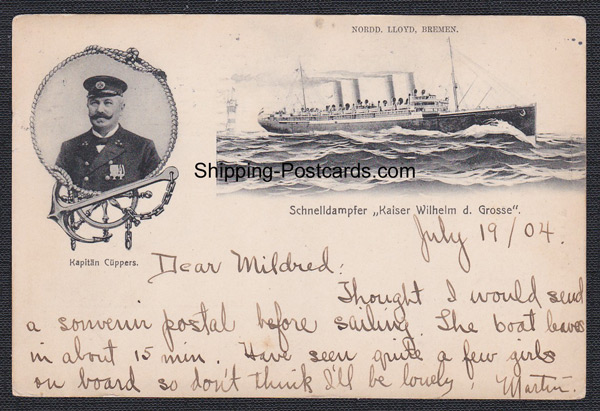 NORDD. LLOYD, BREMEN.
Shipping-Postcards.com
Schnelldampfer „Kaiser Wilhelm d. Grosse“.
Kapitän Cüppers.
July 19/04.
Dear Mildred:
Thought I would send
a sonvenir postal before sailing. The boat leaves
in about 15 min. Have seen quite a few girls
on board so don't think I'll be lonely, Martin.